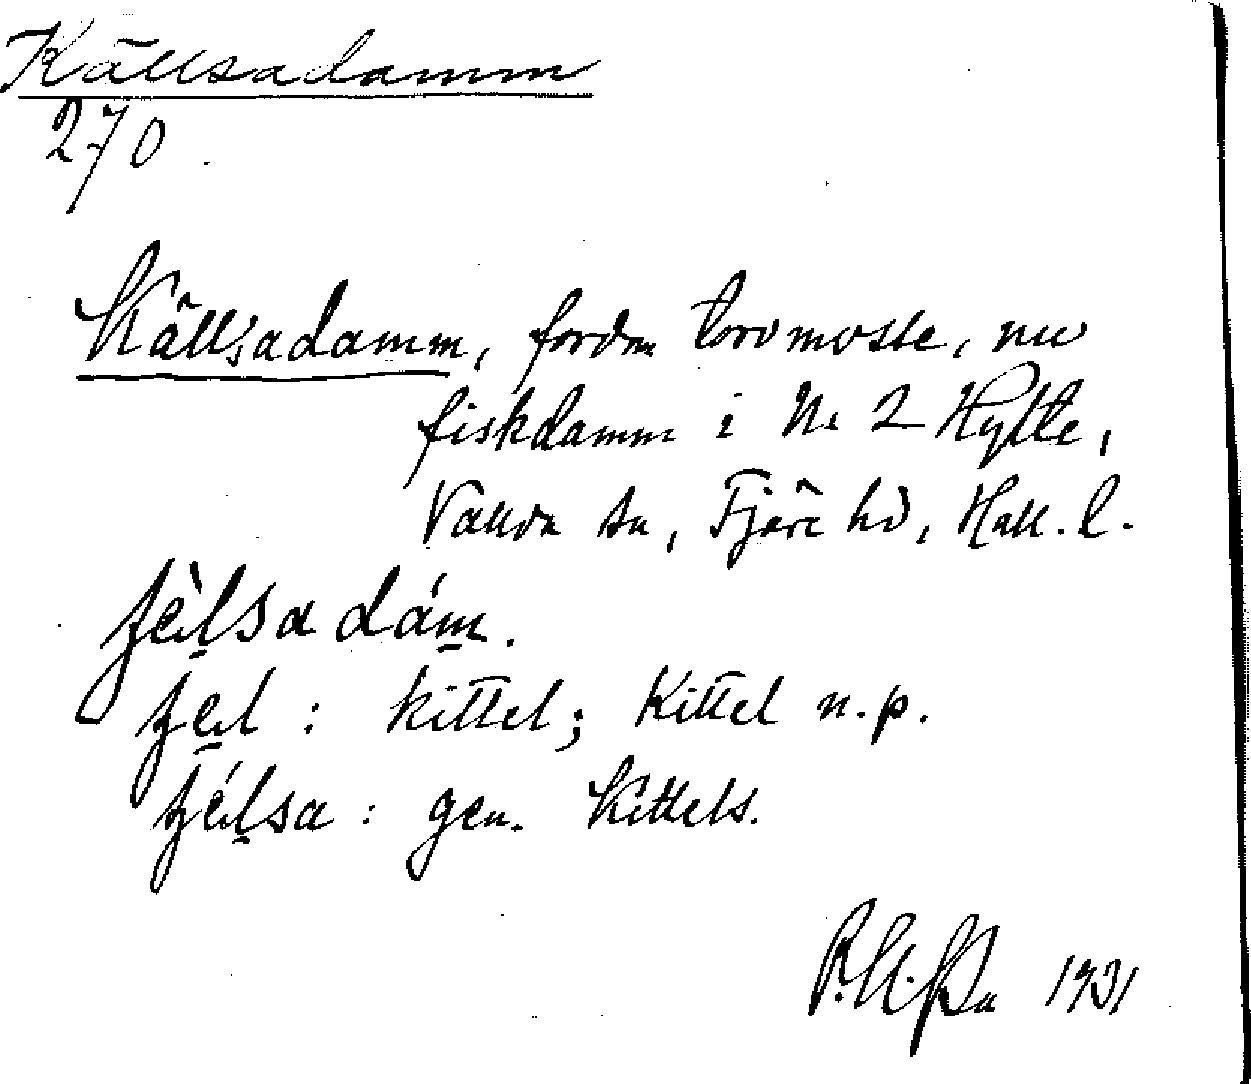 Källsadamm
270
Källsadamm, fordom torvmosse, nu
fiskdamm i Nr 2 Hytte,
Vallda sn, Fjäre hd, Hall. l.
ɟèlsa dám.
ɟel : kittel; Kittel n.p.
ɟélsa : gen. Kittels.
1931